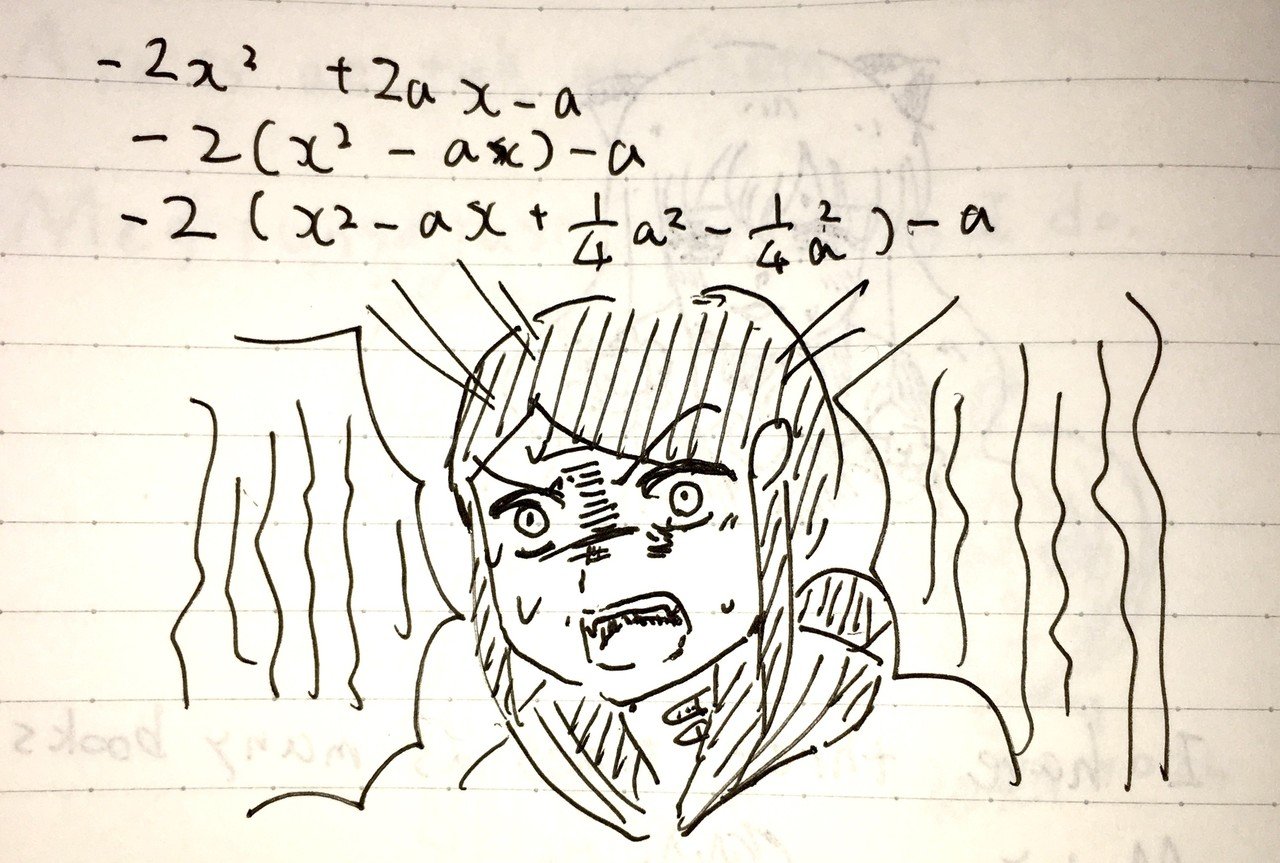 -2x² +2ax-a
-2(x²-ax)-a
-2(x²-ax+1/4a²-1/4a²)-a